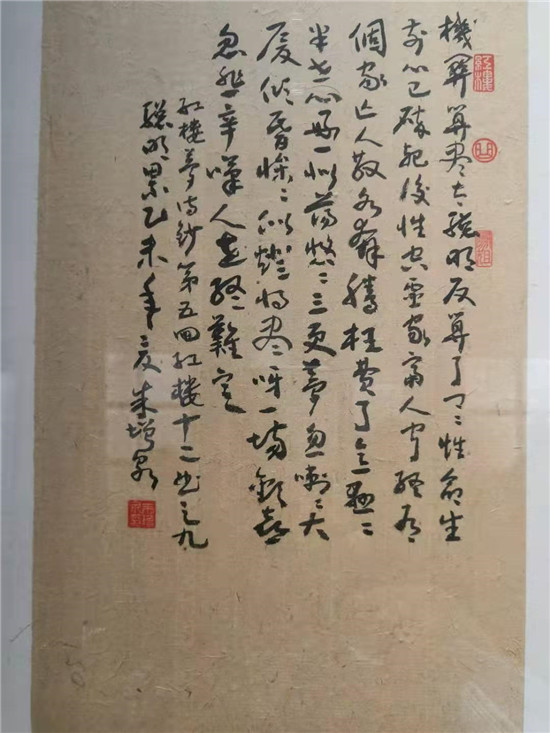 機關算盡太聰明反算了卿〻性命生
前心已碎死後性空靈家富人寧終有
個家亡人散各奔騰枉費了意懸〻
半世心好一似蕩悠〻三更夢忽喇〻大
廈傾昏慘〻似燈將盡呀一場歡喜
忽悲辛嘆人世終難定
紅樓夢詩鈔第五回紅樓十二曲之九
聰明累乙未年夏朱增泉
紅樓